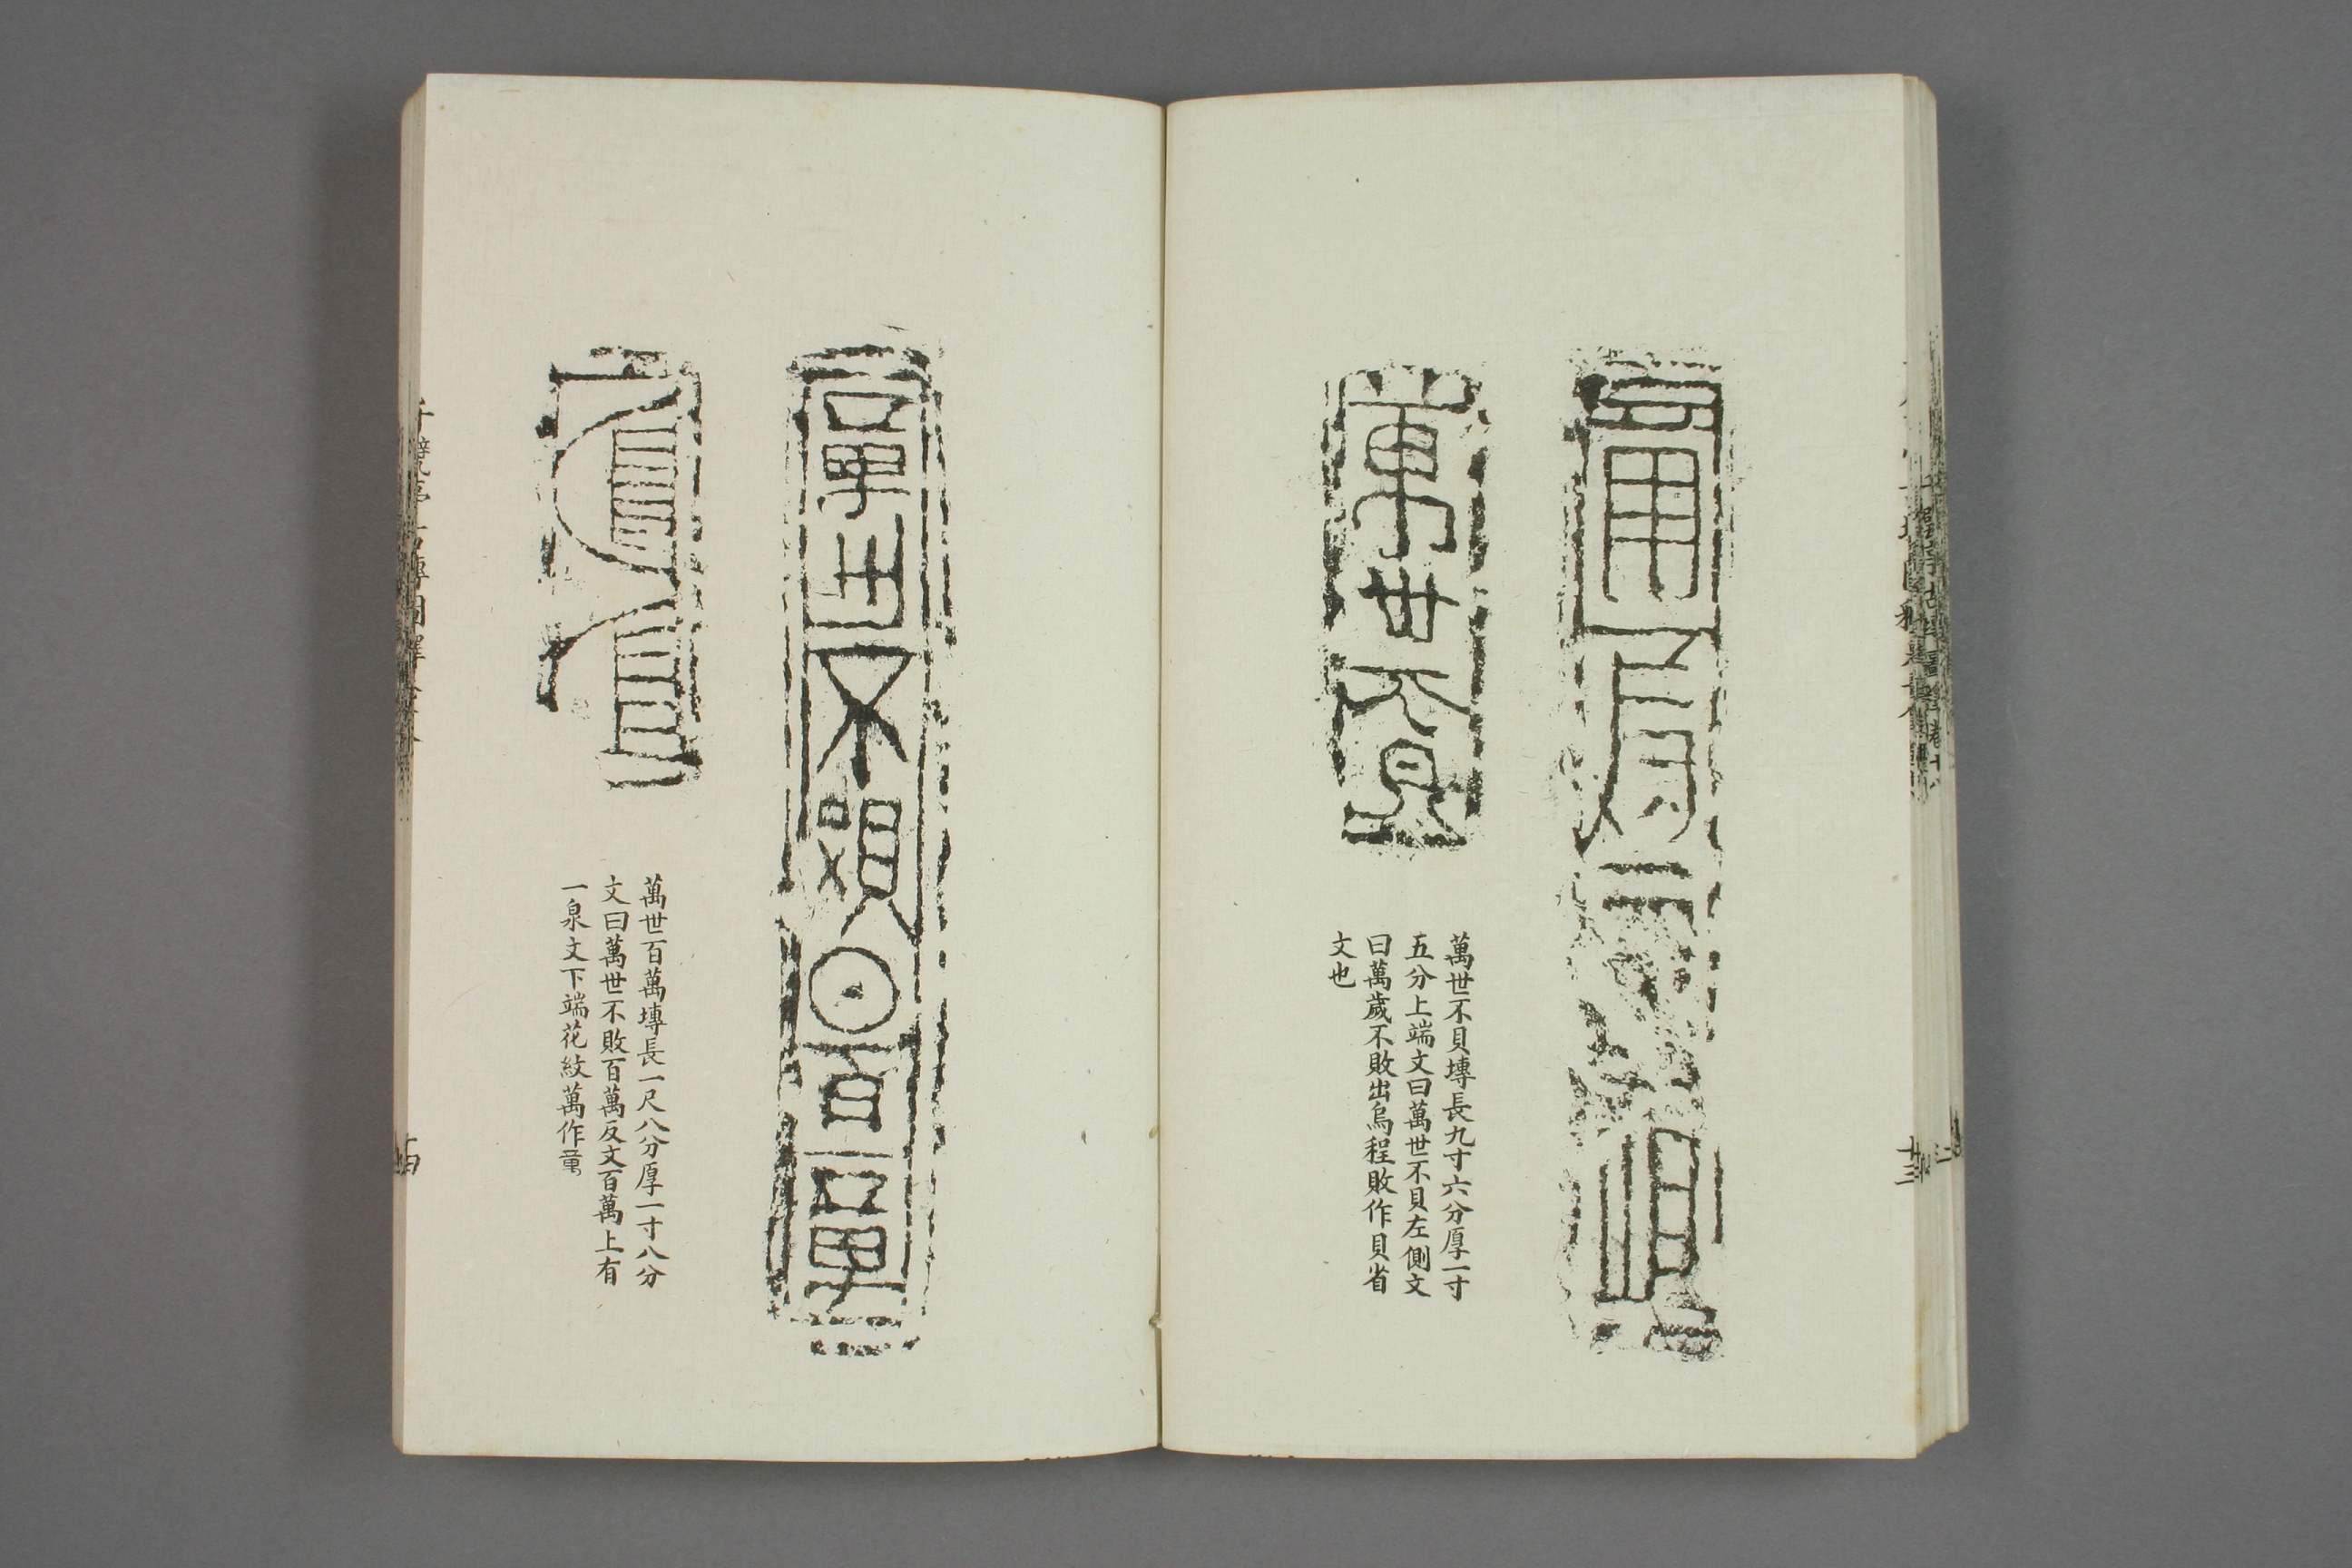 萬世不貝
萬世不貝塼長九寸六分厚一寸
五分上端文曰萬世不貝左側文
曰萬歲不敗出烏程敗作貝省
文也
十三
萬世不敗
百萬
萬世百萬塼長一尺八分厚一寸八分
文曰萬世不敗百萬反文百萬上有
一泉文下端花紋萬作𮓗